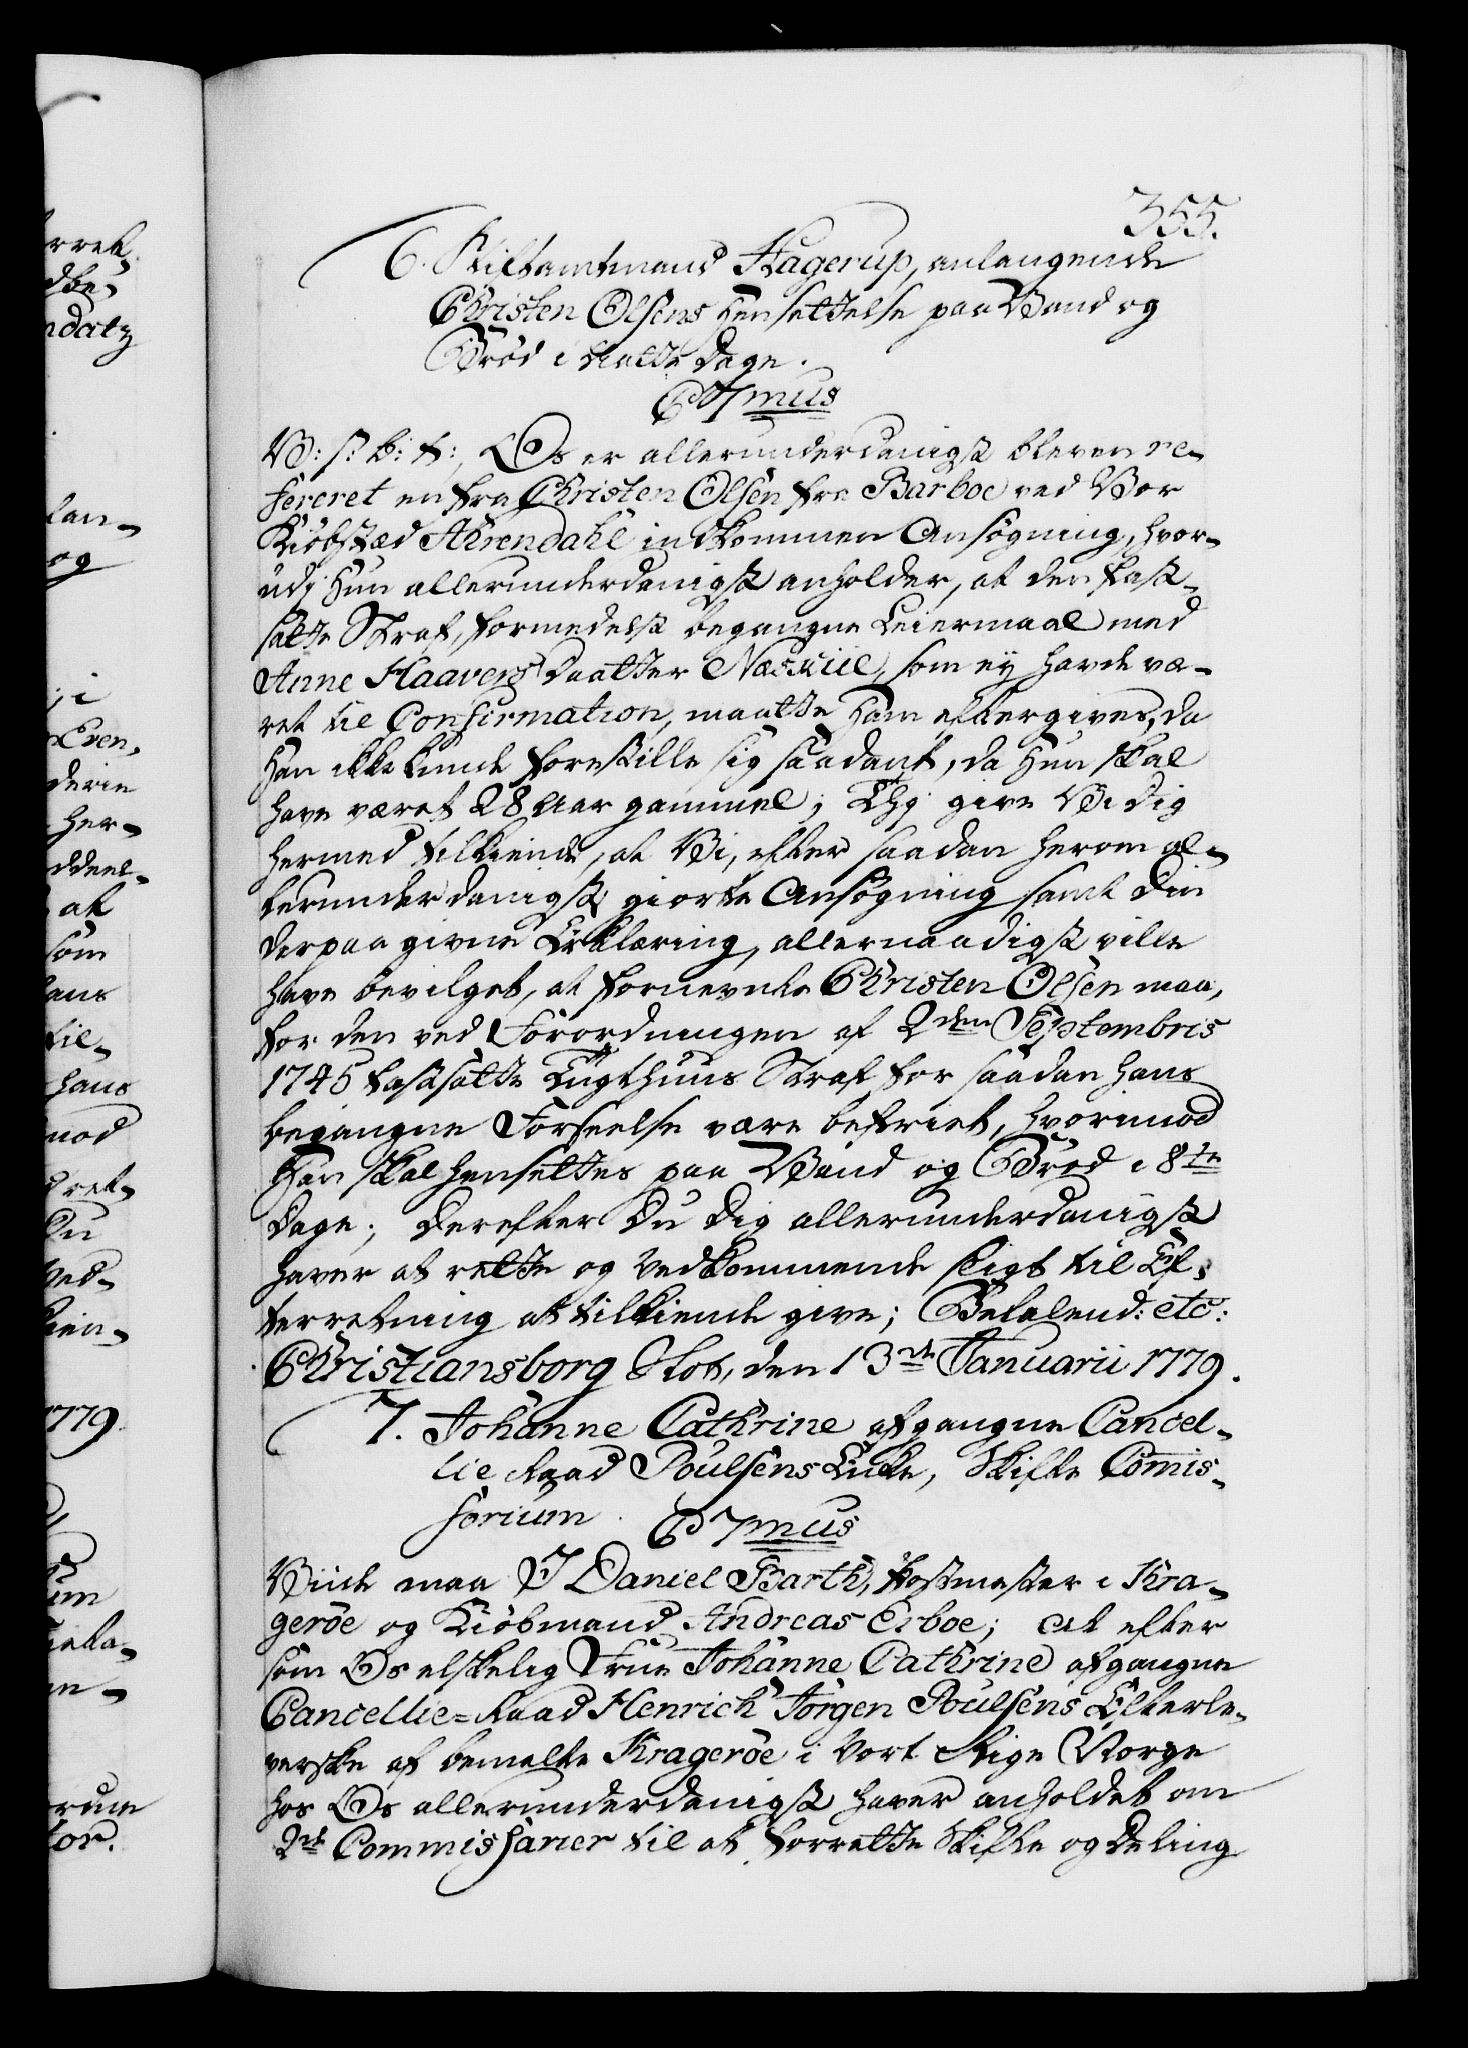 355.
6. Stiftamtmand Hagerup, anlangende
Christen Olsens hensettelse paa Vand og
Brød i Aatte Dage.
C 7mus
V: s: b: t:, Os er allerunderdanigst bleven re-
fereret en fra Christen Olsen fra Barboe ved Vor
Kiöbstæd Ahrendahl indkommen Ansøgning, hvor-
udj hun allerunderdanigst anholder, at den fast-
satte Straf, formedelst begangne Leiermaal med
Anne Haavers Daatter Næskiil, som ey havde væ-
ret til Confirmation, maatte ham eftergives, da
han ikke kunde forestille sig saadant, da hun skal
have været 28 Aar gammel; Thj give Vi dig
hermed tilkiende, at Vi, efter saadan herom al-
lerunderdanigst giorte Ansøgning samt Din
derpaa givne Erklæring, allernaadigst ville
have bevilget, at fornevnte Christen Olsen maa,
for den ved Forordningen af 2den Septembris
1745 fastsatte Tugthuus Straf for saadan hans
begangne Forseelse være befriet, hvorimod
Han skal hensettes paa Vand og Brød i 8te
Dage; Derefter Du Dig allerunderdanigst
haver at rette og Vedkommende sligt til Ef-
terretning at tilkiende give; Befalend: etc:
Christiansborg Slot, den 13de Januarii 1779.
7. Johanne Cathrine afgangne Cancel-
lie Raad Poulsens Enke, Skifte Comis-
sorium. C 7mus
Viide maa I Daniel Barth, Postmester i Kra-
gerøe og Kiöbmand Andreas Erboe; at efter
som Os elskelig Frue Johanne Cathrine afgangne
Cancellie-Raad Henrich Jørgen Poulsens Efterle-
verske af bemelte Kragerøe i Vort Rige Norge
hos Os allerunderdanigst haver anholdet om
2de Commissarier til at forrette Skifte og Deeling